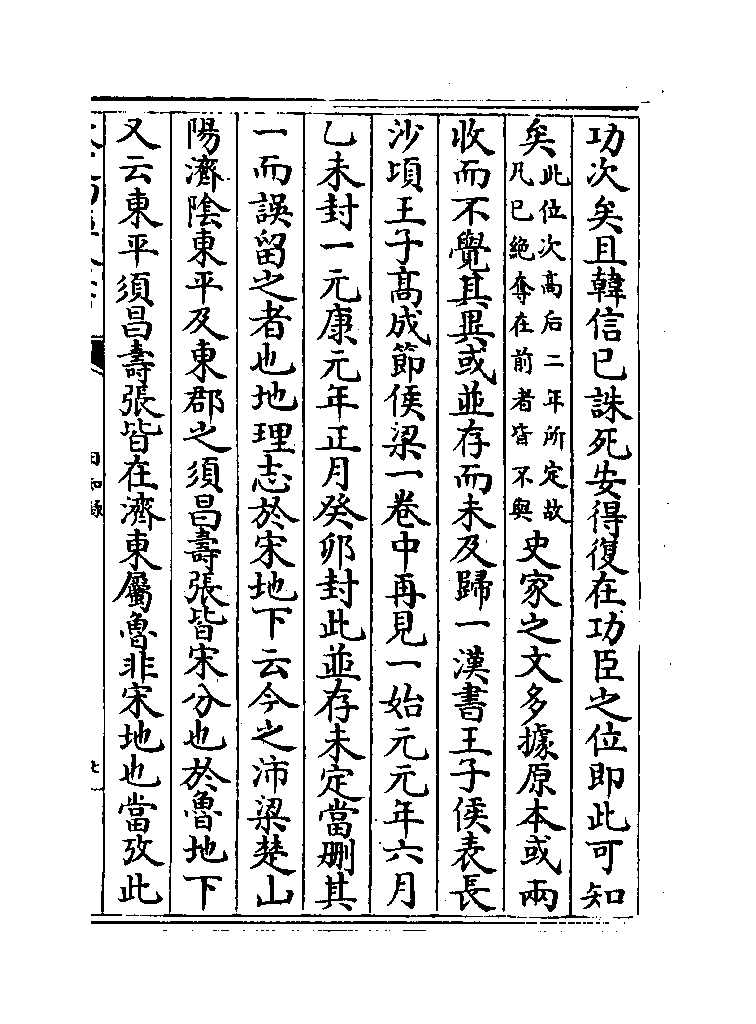 功次矣且韓信已誅死安得復在功臣之位即此可知
矣此位次高后二年所定故凡已絶奪在前者皆不與史家之文多據原本或兩
收而不覺其異或並存而未及歸一漢書王子侯表長
沙頃王子高成節侯梁一卷中再見一始元元年六月
乙未封一元康元年正月癸卯封此並存未定當刪其
一而誤留之者也地理志於宋地下云今之沛梁楚山
陽濟陰東平及東郡之須昌壽張皆宋分也於魯地下
又云東平須昌壽張皆在濟東屬魯非宋地也當攷此
日知録
七